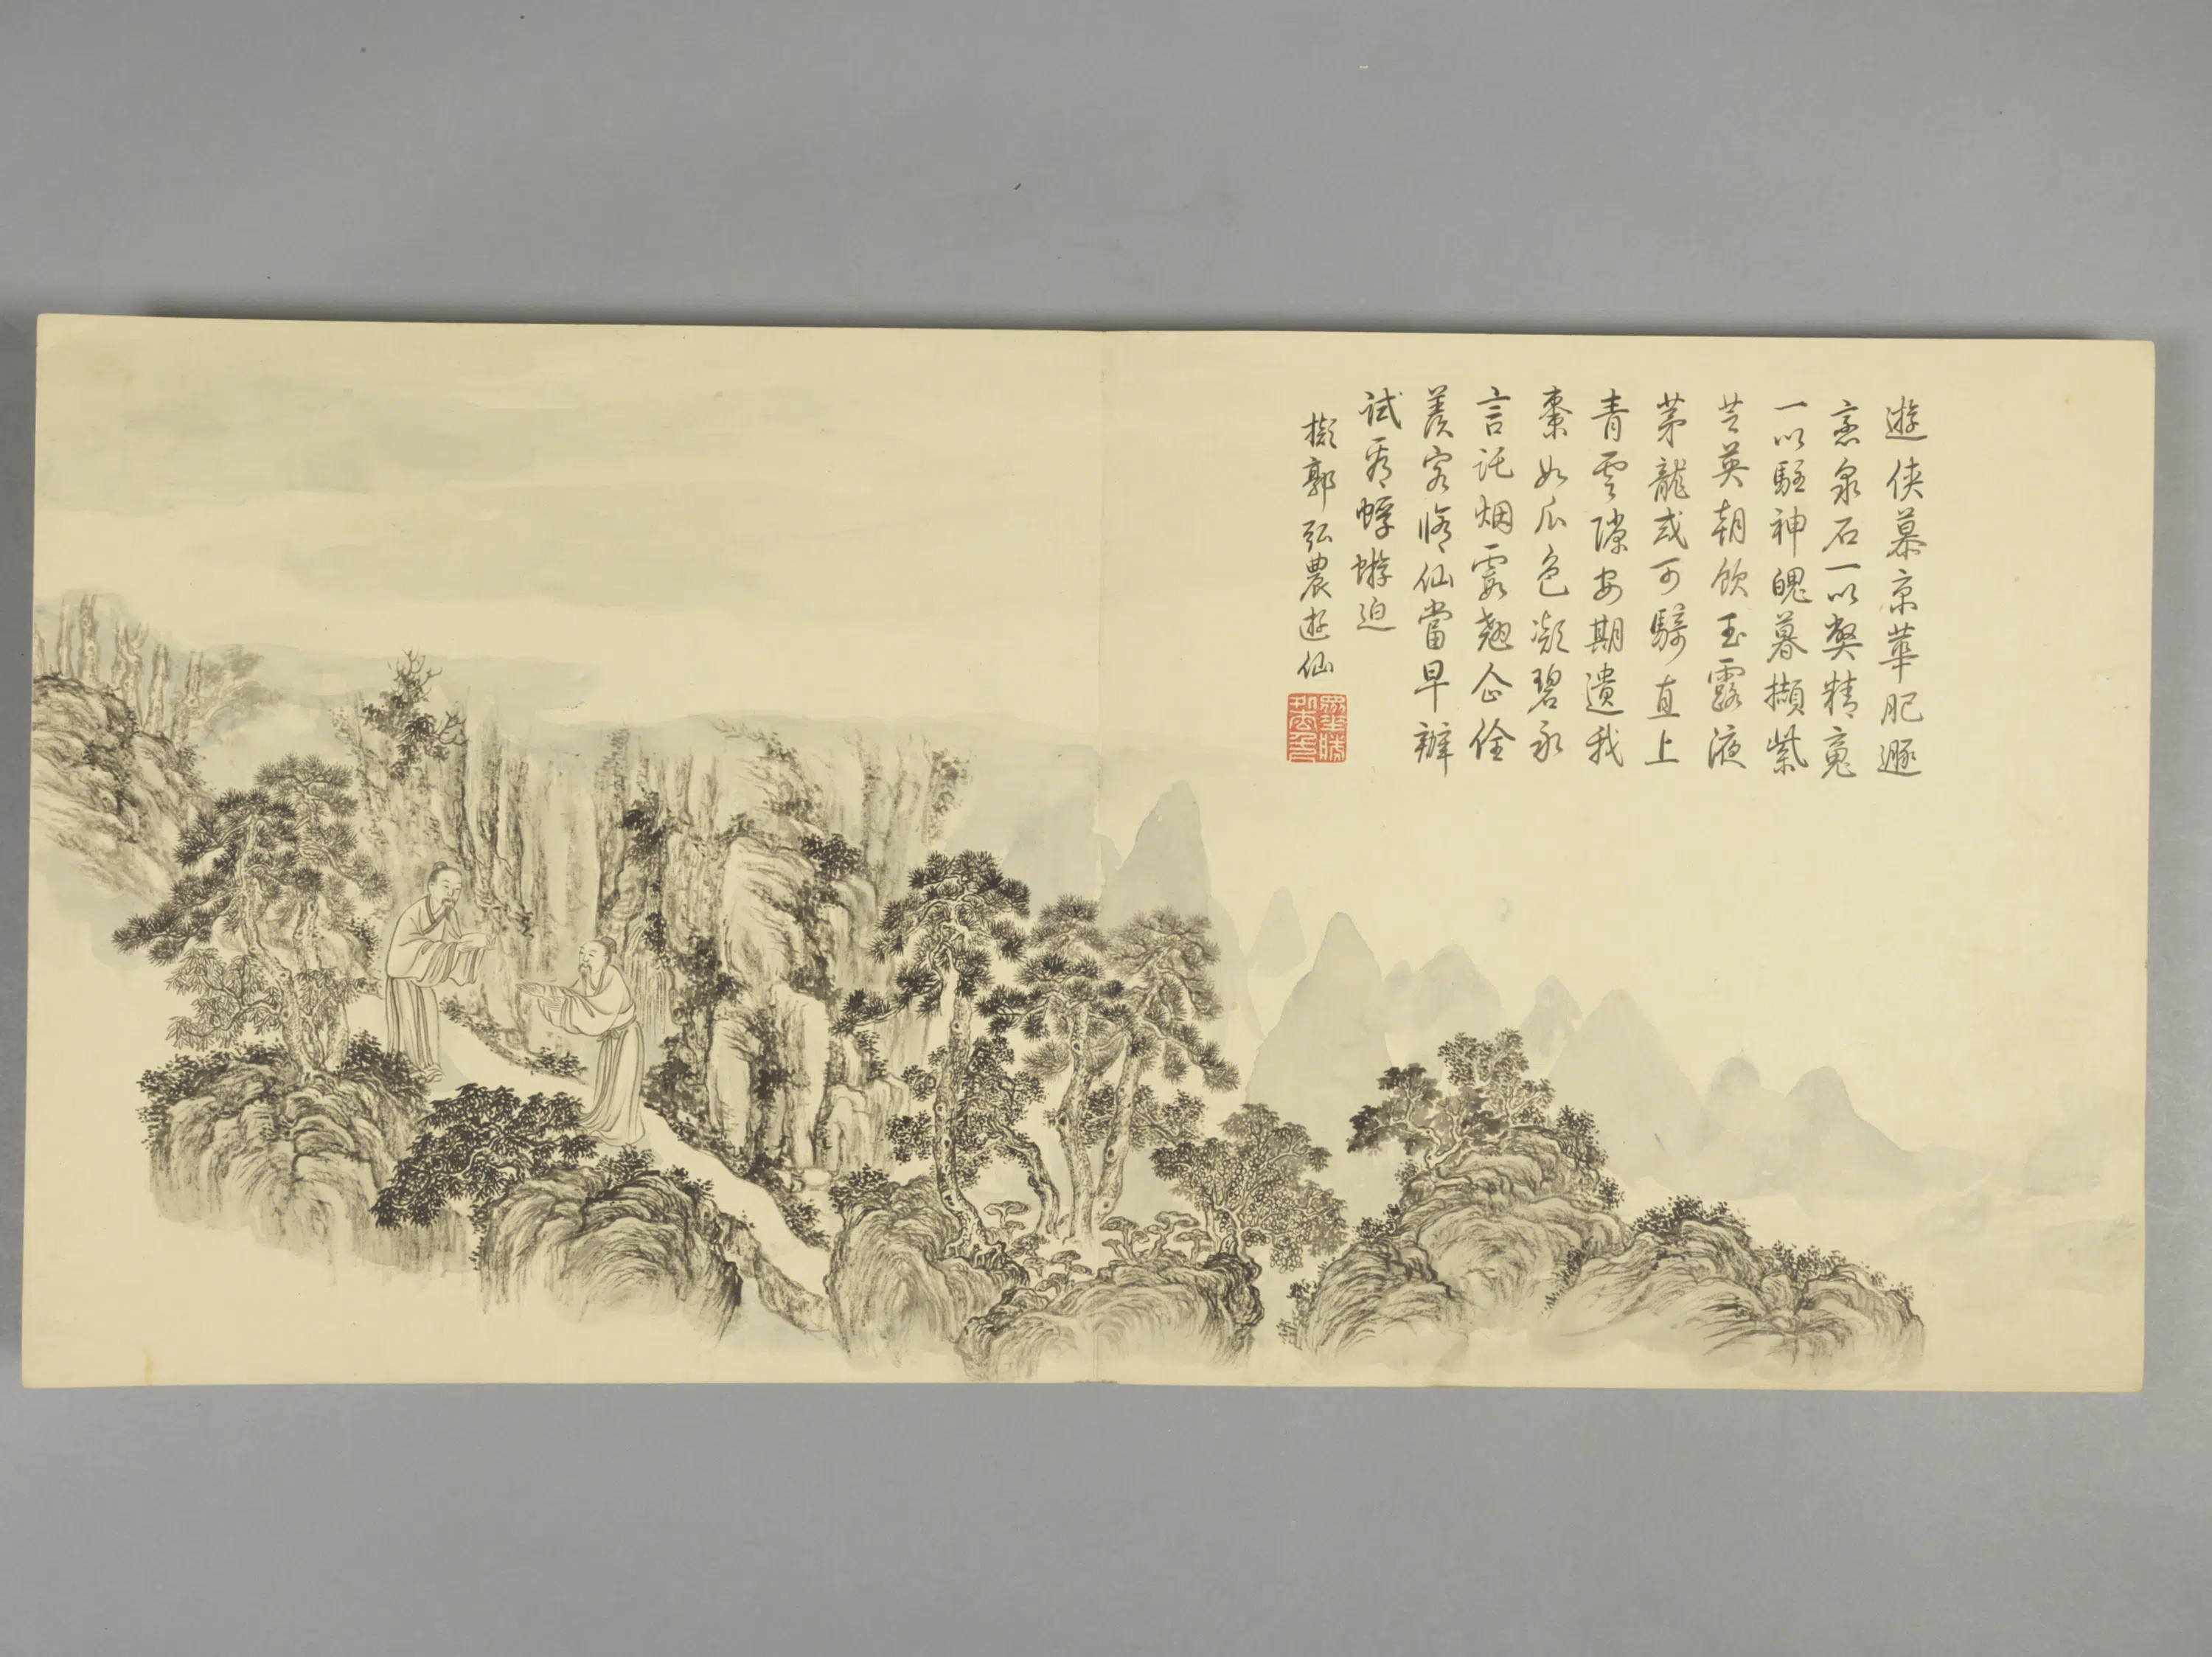 遊俠慕京華肥遯
戀泉石一以弊精魂
一以駐神魄暮擷紫
芝英朝飲玉露液
茅龍或可騎直上
青雲隙安期遺我
棗如瓜色凝碧永
言託烟霞翹企佺
羨客脩仙當早辦
試看蜉蝣迫
擬郭弘農遊仙